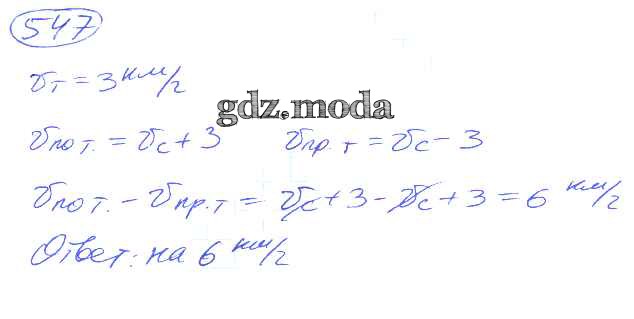 547
υт = 3 км/ч
gdz.moda
υпо т. = υс + 3 υпр. т = υс − 3
υпо т. − υпр. т = υс + 3 − υс + 3 = 6 км/ч
Ответ: на 6 км/ч